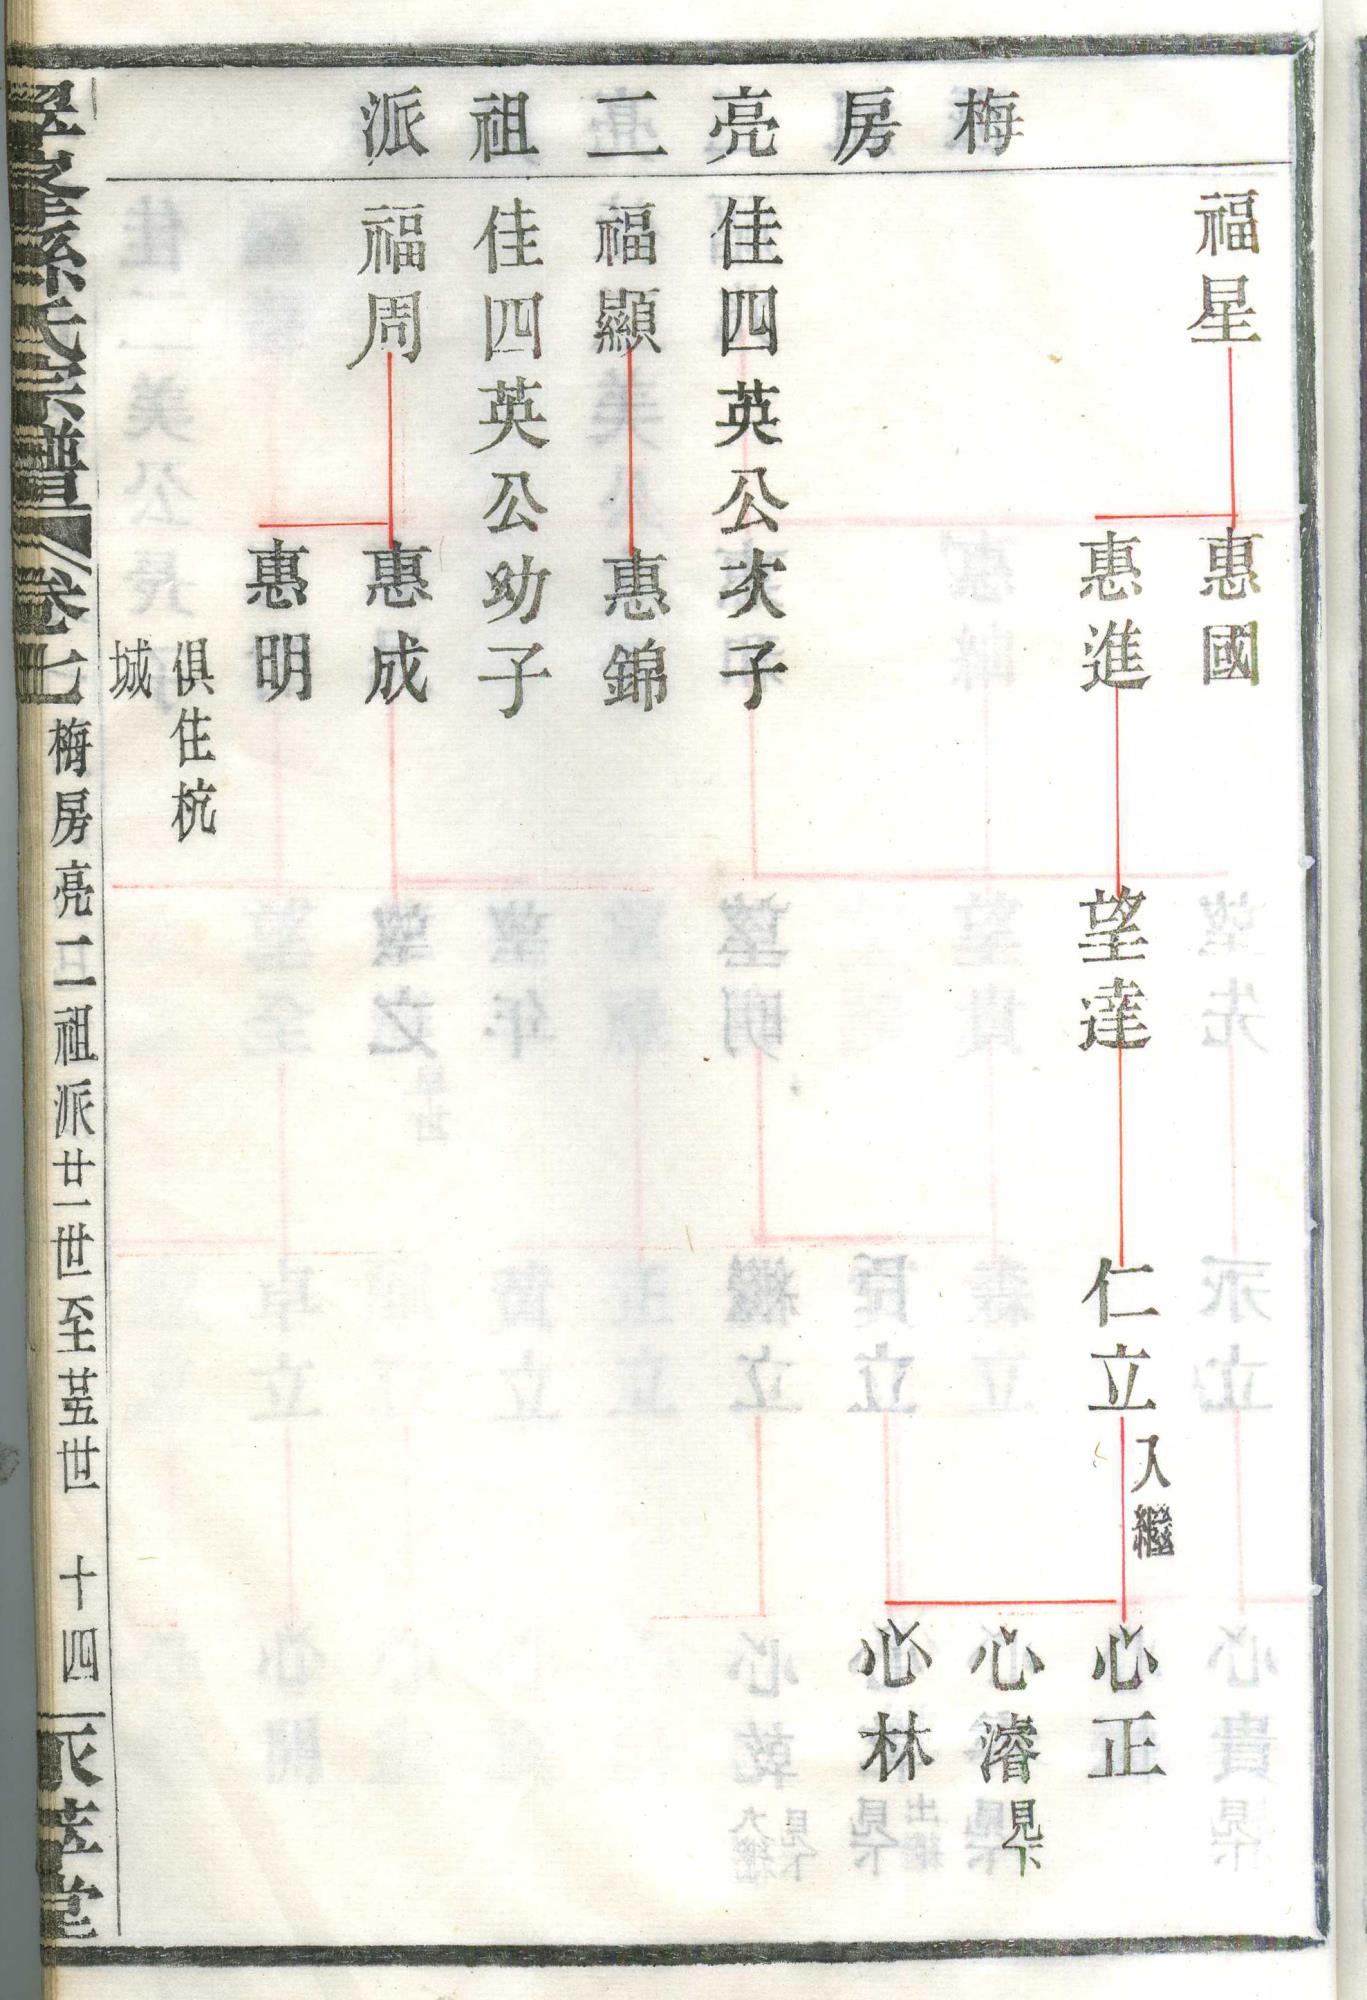 梅房亮二祖派
福星
惠國
惠進
望達
仁立
入繼
心正
心濬
見下
心林
佳四英公次子
福顯
惠錦
佳四英公幼子
福周
惠成
惠明
俱住杭
城
孫氏宗譜
卷七
梅房亮二祖派廿一世至廿五世
十四
堂